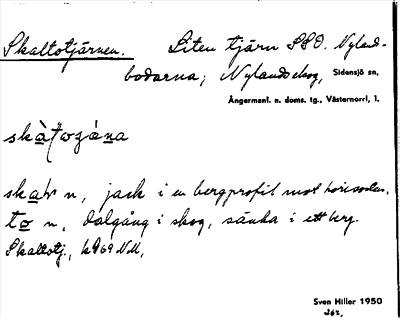 Skaltotjärnen. Liten tjärn SSO. Nyland-
bodarna; Nylandsskog, Sidensjö sn,
Ångermanl. n. doms. tg., Västernorrl. l.
n, jack i en bergprofil mot horisonten,
to n, dalgång i skog, sänka i ett berg.
Skaltotj., k 969 NM,
Sven Hiller 1950